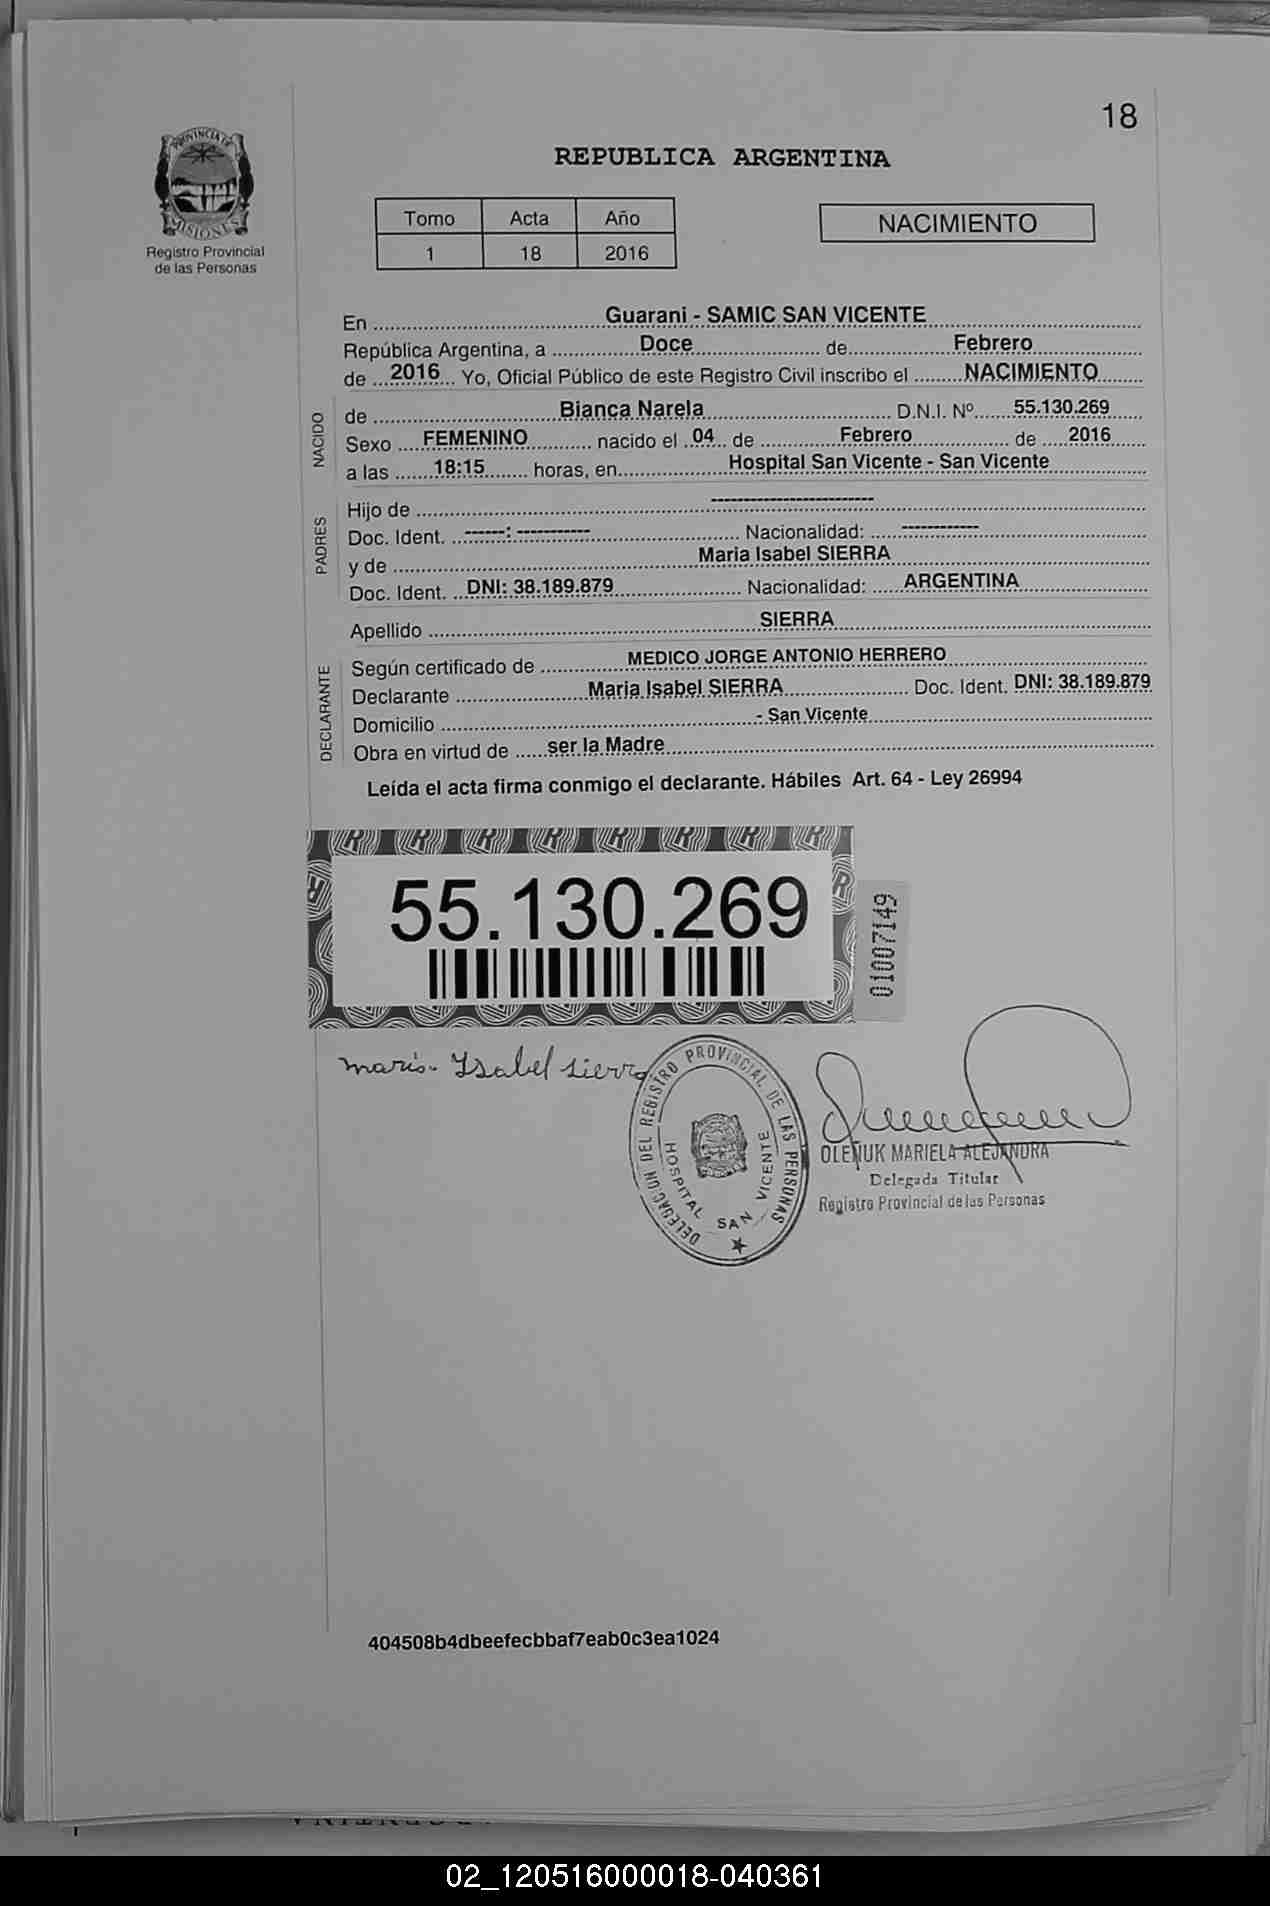 18
PROVINCIA DE
MISIONES
Registro Provincial
de las Personas
REPUBLICA ARGENTINA
Tomo Acta Año
1 18 2016
NACIMIENTO
En Guarani - SAMIC SAN VICENTE
República Argentina, a Doce de Febrero
de 2016 Yo, Oficial Público de este Registro Civil inscribo el NACIMIENTO
NACIDO
de Bianca Narela D.N.I. Nº 55.130.269
Sexo FEMENINO nacido el 04 de Febrero de 2016
a las 18:15 horas, en Hospital San Vicente - San Vicente
PADRES
Hijo de -------------------------
Doc. Ident. ------: ----------- Nacionalidad: ------------
y de Maria Isabel SIERRA
Doc. Ident. DNI: 38.189.879 Nacionalidad: ARGENTINA
Apellido SIERRA
DECLARANTE
Según certificado de MEDICO JORGE ANTONIO HERRERO
Declarante Maria Isabel SIERRA Doc. Ident. DNI: 38.189.879
Domicilio - San Vicente
Obra en virtud de ser la Madre
Leída el acta firma conmigo el declarante. Hábiles Art. 64 - Ley 26994
55.130.269
01007149
maria Ysabel sierra
DELEGACION DEL REGISTRO PROVINCIAL DE LAS PERSONAS
HOSPITAL SAN VICENTE
OLENIUK MARIELA ALEJANDRA
Delegada Titular
Registro Provincial de las Personas
404508b4dbeefecbbaf7eab0c3ea1024
02_120516000018-040361